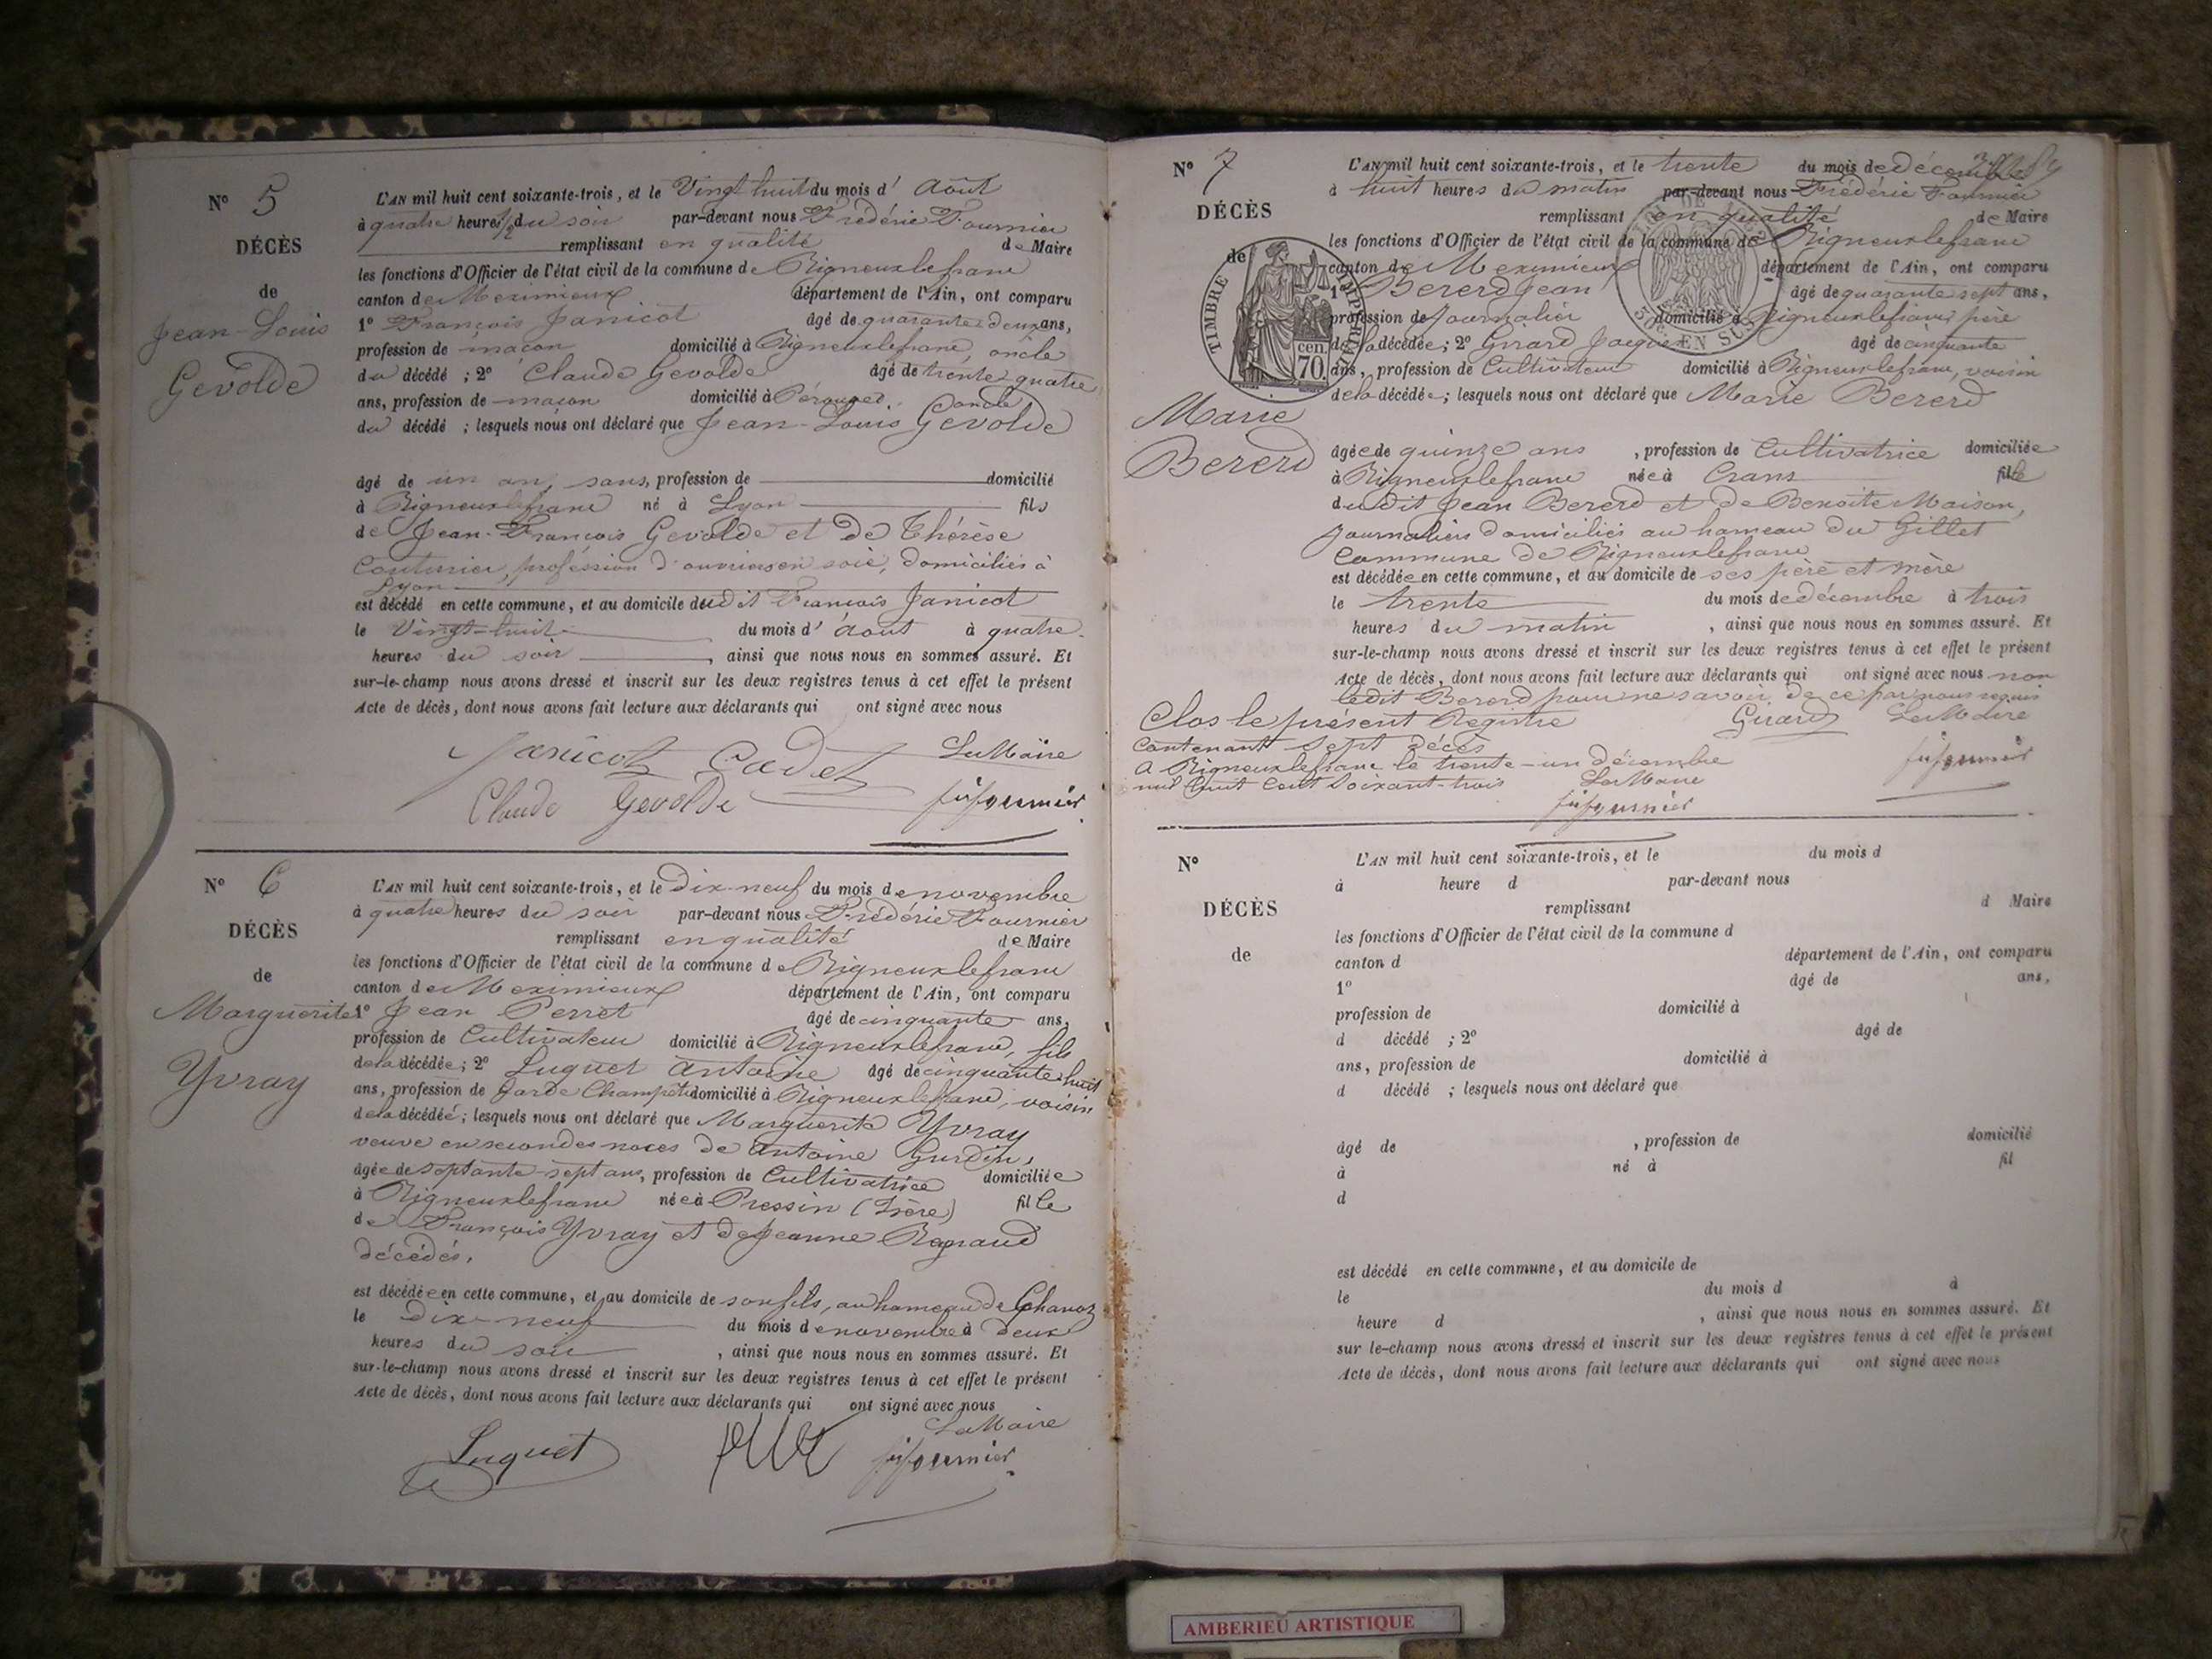 N° 5
DÉCÈS
de
Jean-Louis
Gevolde
L'AN mil huit cent soixante-trois, et le Vingt huit du mois d' Août
à quatre heures ½ du soir par-devant nous Frédéric Fournier
remplissant en qualité de Maire
les fonctions d'Officier de l'état civil de la commune de Rigneuxlefranc
canton de Meximieux département de l'Ain, ont comparu
1° François Janicot âgé de quarante deux ans,
profession de maçon domicilié à Rigneuxlefranc, oncle
du décédé ; 2° Claude Gevolde âgé de trente quatre
ans, profession de maçon domicilié à Pérouges, oncle
du décédé ; lesquels nous ont déclaré que Jean-Louis Gevolde
âgé de un an, sans, profession de domicilié
à Rigneuxlefranc né à Lyon fils
de Jean-François Gevolde et de Thérèse
Couturier, profession d'ouvriers en soie, domiciliés à
Lyon
est décédé en cette commune, et au domicile dudit François Janicot
le Vingt-huit du mois d' août à quatre
heures du soir, ainsi que nous nous en sommes assuré. Et
sur-le-champ nous avons dressé et inscrit sur les deux registres tenus à cet effet le présent
Acte de décès, dont nous avons fait lecture aux déclarants qui ont signé avec nous
Janicot Cadet Le Maire
Claude Gevolde fs fournier
N° 6
DÉCÈS
de
Marguerite
Yvray
L'AN mil huit cent soixante-trois, et le Dix-neuf du mois de novembre
à quatre heures du soir par-devant nous Frédéric Fournier
remplissant en qualité de Maire
les fonctions d'Officier de l'état civil de la commune de Rigneuxlefranc
canton de Meximieux département de l'Ain, ont comparu
1° Jean Perret âgé de cinquante ans,
profession de Cultivateur domicilié à Rigneuxlefranc, fils
de la décédée ; 2° Luquet Antoine âgé de cinquante huit
ans, profession de Garde Champêtre domicilié à Rigneuxlefranc, voisin
de la décédée ; lesquels nous ont déclaré que Marguerite Yvray
veuve en secondes noces de Antoine Gurdin,
âgée de septante-sept ans, profession de Cultivatrice domiciliée
à Rigneuxlefranc née à Pressin (Isère) fille
de François Yvray et de Jeanne Regnaud
décédés.
est décédée en cette commune, et au domicile de son fils, au hameau de Chanoz
le Dix-neuf du mois de novembre à deux
heures du soir, ainsi que nous nous en sommes assuré. Et
sur-le-champ nous avons dressé et inscrit sur les deux registres tenus à cet effet le présent
Acte de décès, dont nous avons fait lecture aux déclarants qui ont signé avec nous
Le Maire
Luquet fs fournier
N° 7
DÉCÈS
de
TIMBRE IMPÉRIAL
70 cen.
Marie
Bererd
L'AN mil huit cent soixante-trois, et le trente du mois de décembre
à huit heures du matin par-devant nous Frédéric Fournier
remplissant en qualité de Maire
les fonctions d'Officier de l'état civil de la commune de Rigneuxlefranc
canton de Meximieux département de l'Ain, ont comparu
1° Bererd Jean âgé de quarante sept ans,
profession de Journalier domicilié à Rigneuxlefranc père
de la décédée ; 2° Girard Jacques âgé de cinquante
ans, profession de Cultivateur domicilié à Rigneuxlefranc, voisin
de la décédée ; lesquels nous ont déclaré que Marie Bererd
EN SUS
âgée de quinze ans, profession de Cultivatrice domiciliée
à Rigneuxlefranc née à Crans fille
dudit Jean Bererd et de Benoite Maison,
journaliers domiciliés au hameau du Gillet
Commune de Rigneuxlefranc
est décédée en cette commune, et au domicile de ses père et mère
le trente du mois de décembre à trois
heures du matin, ainsi que nous nous en sommes assuré. Et
sur-le-champ nous avons dressé et inscrit sur les deux registres tenus à cet effet le présent
Acte de décès, dont nous avons fait lecture aux déclarants qui ont signé avec nous non
ledit Bererd pour ne savoir, de ce par nous requis
Girard Le Maire
fs fournier
Clos le présent Registre
Contenant sept décès
A Rigneuxlefranc le trente-un décembre
mil huit cent soixant-trois Le Maire
fs fournier
N°
DÉCÈS
de
L'AN mil huit cent soixante-trois, et le du mois d
à heure d par-devant nous
remplissant d Maire
les fonctions d'Officier de l'état civil de la commune d
canton d département de l'Ain, ont comparu
1° âgé de ans,
profession de domicilié à
d décédé ; 2° âgé de
ans, profession de domicilié à
d décédé ; lesquels nous ont déclaré que
âgé de , profession de domicilié
à né à fil
d
est décédé en cette commune, et au domicile de
le du mois d à
heure d , ainsi que nous nous en sommes assuré. Et
sur le-champ nous avons dressé et inscrit sur les deux registres tenus à cet effet le présent
Acte de décès, dont nous avons fait lecture aux déclarants qui ont signé avec nous
AMBERIEU ARTISTIQUE